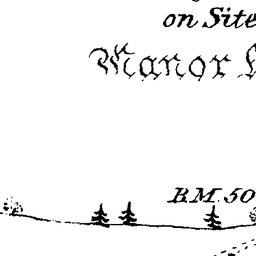 on Site
Manor
B.M. 50